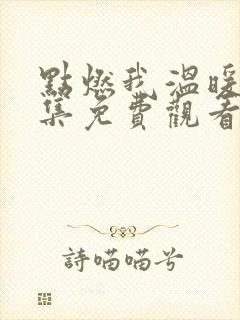 點燃我溫暖
集免費觀看
詩喵喵兮